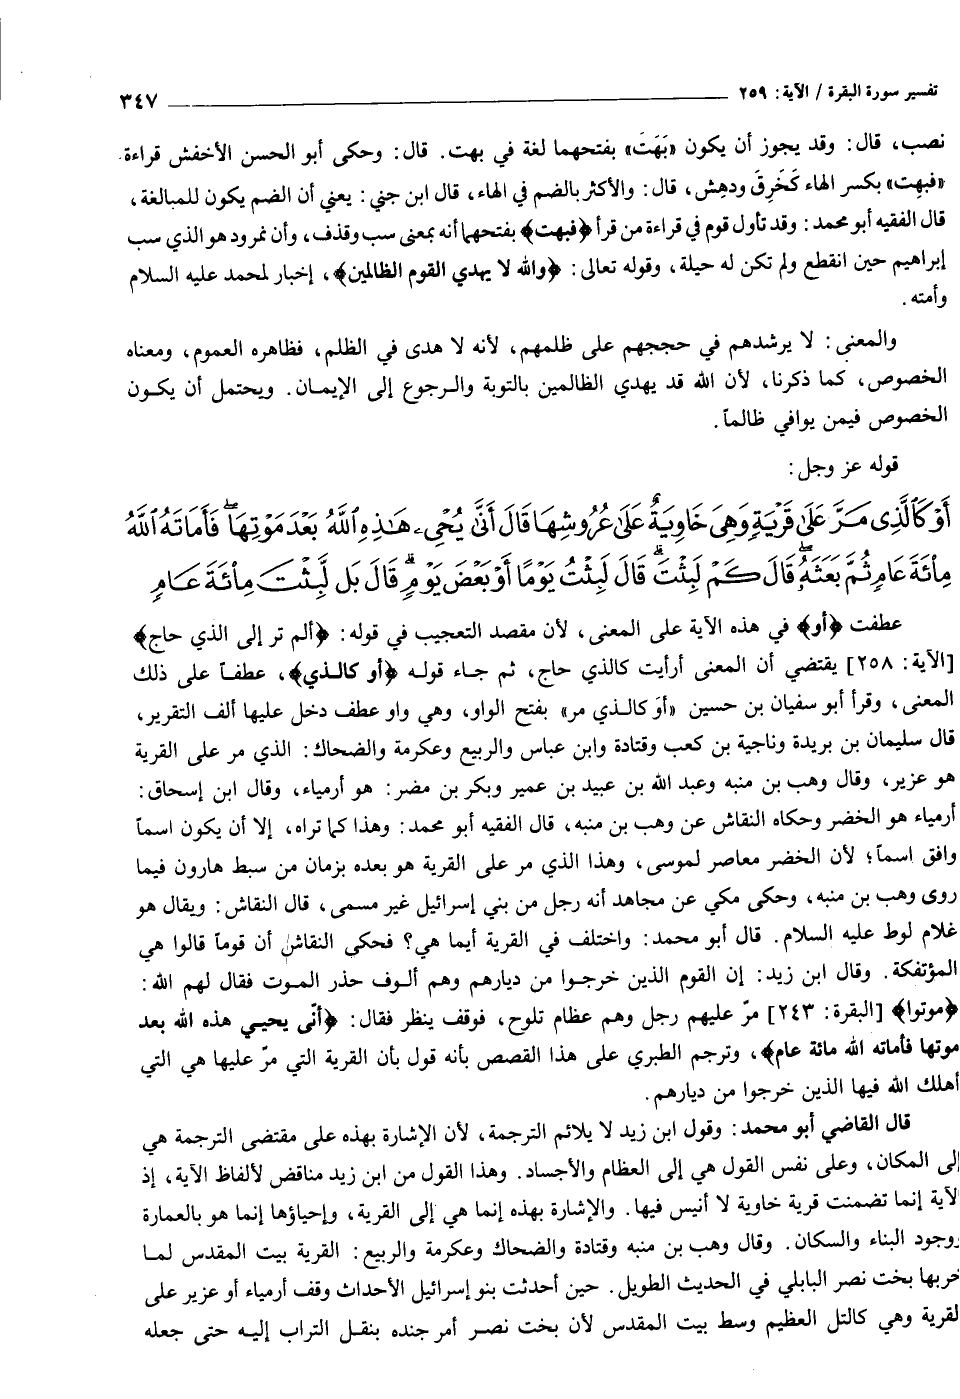 تفسير سورة البقرة / الآية: ٢٥٩ ٣٤٧
نصب، قال: وقد يجوز أن يكون «بَهَتَ» بفتحهما لغة في بهت. قال: وحكى أبو الحسن الأخفش قراءة
«فبهِت» بكسر الهاء كَخَرِقَ ودهِش، قال: والأكثر بالضم في الهاء، قال ابن جني: يعني أن الضم يكون للمبالغة،
قال الفقيه أبو محمد: وقد تأول قوم في قراءة من قرأ ﴿فبهت﴾ بفتحهما أنه بمعنى سب وقذف، وأن نمرود هو الذي سب
إبراهيم حين انقطع ولم تكن له حيلة، وقوله تعالى: ﴿والله لا يهدي القوم الظالمين﴾، إخبار لمحمد عليه السلام
وأمته.
والمعنى: لا يرشدهم في حججهم على ظلمهم، لأنه لا هدى في الظلم، فظاهره العموم، ومعناه
الخصوص، كما ذكرنا، لأن الله قد يهدي الظالمين بالتوبة والرجوع إلى الإيمان. ويحتمل أن يكون
الخصوص فيمن يوافي ظالماً.
قوله عز وجل:
أَوْ كَالَّذِى مَرَّ عَلَىٰ قَرْيَةٍ وَهِىَ خَاوِيَةٌ عَلَىٰ عُرُوشِهَا قَالَ أَنَّىٰ يُحْىِۦ هَـٰذِهِ ٱللَّهُ بَعْدَ مَوْتِهَا ۖ فَأَمَاتَهُ ٱللَّهُ
مِا۟ئَةَ عَامٍ ثُمَّ بَعَثَهُۥ ۖ قَالَ كَمْ لَبِثْتَ ۖ قَالَ لَبِثْتُ يَوْمًا أَوْ بَعْضَ يَوْمٍ ۖ قَالَ بَل لَّبِثْتَ مِا۟ئَةَ عَامٍ
عطفت ﴿أو﴾ في هذه الآية على المعنى، لأن مقصد التعجيب في قوله: ﴿ألم تر إلى الذي حاج﴾
[الآية: ٢٥٨] يقتضي أن المعنى أرأيت كالذي حاج، ثم جاء قوله ﴿أو كالذي﴾، عطفاً على ذلك
المعنى، وقرأ أبو سفيان بن حسين «أوَ كالذي مر» بفتح الواو، وهي واو عطف دخل عليها ألف التقرير،
قال سليمان بن بريدة وناجية بن كعب وقتادة وابن عباس والربيع وعكرمة والضحاك: الذي مر على القرية
هو عزير، وقال وهب بن منبه وعبد الله بن عبيد بن عمير وبكر بن مضر: هو أرمياء، وقال ابن إسحاق:
أرمياء هو الخضر وحكاه النقاش عن وهب بن منبه، قال الفقيه أبو محمد: وهذا كما تراه، إلا أن يكون اسماً
وافق اسماً؛ لأن الخضر معاصر لموسى، وهذا الذي مر على القرية هو بعده بزمان من سبط هارون فيما
روى وهب بن منبه، وحكى مكي عن مجاهد أنه رجل من بني إسرائيل غير مسمى، قال النقاش: ويقال هو
غلام لوط عليه السلام. قال أبو محمد: واختلف في القرية أيما هي؟ فحكى النقاش أن قوماً قالوا هي
المؤتفكة. وقال ابن زيد: إن القوم الذين خرجوا من ديارهم وهم ألوف حذر الموت فقال لهم الله:
﴿موتوا﴾ [البقرة: ٢٤٣] مرّ عليهم رجل وهم عظام تلوح، فوقف ينظر فقال: ﴿أنّى يحيي هذه الله بعد
موتها فأماته الله مائة عام﴾، وترجم الطبري على هذا القصص بأنه قول بأن القرية التي مرّ عليها هي التي
أهلك الله فيها الذين خرجوا من ديارهم.
قال القاضي أبو محمد: وقول ابن زيد لا يلائم الترجمة، لأن الإشارة بهذه على مقتضى الترجمة هي
إلى المكان، وعلى نفس القول هي إلى العظام والأجساد. وهذا القول من ابن زيد مناقض لألفاظ الآية، إذ
الآية إنما تضمنت قرية خاوية لا أنيس فيها. والإشارة بهذه إنما هي إلى القرية، وإحياؤها إنما هو بالعمارة
ووجود البناء والسكان. وقال وهب بن منبه وقتادة والضحاك وعكرمة والربيع: القرية بيت المقدس لما
خربها بخت نصر البابلي في الحديث الطويل. حين أحدثت بنو إسرائيل الأحداث وقف أرمياء أو عزير على
القرية وهي كالتل العظيم وسط بيت المقدس لأن بخت نصر أمر جنده بنقل التراب إليه حتى جعله